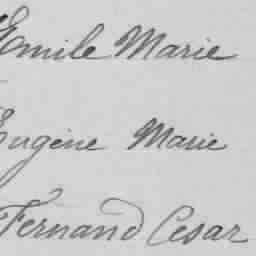 Emile Marie
Eugène Marie
Fernand Cesar